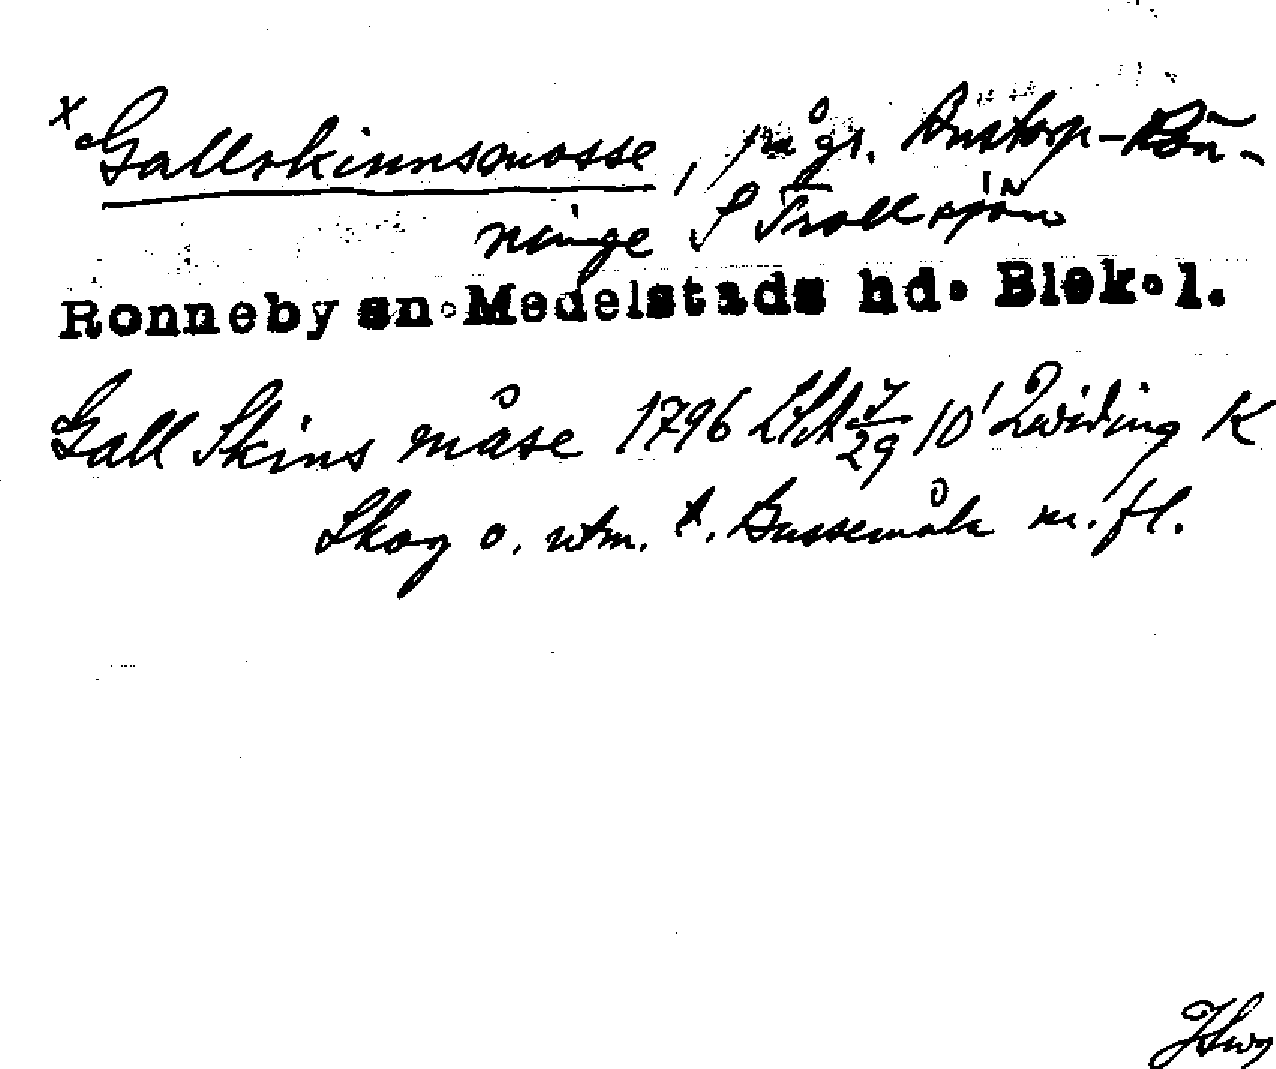 x Gallskinnsmosse, på gr. Anstorp-Rön-
ninge S Trollsjön
Ronneby sn. Medelstads hd. Blek. l.
Gall Skins måse 1796 LSA 7/29 10' Qwiding K
Skog o. utm. t. Bussemåla m. fl.